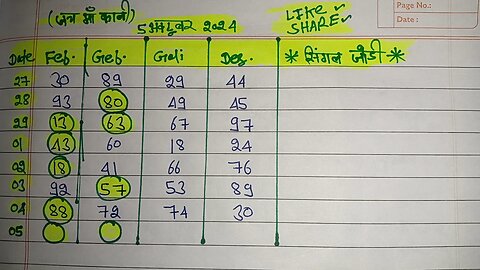 (जय माँ काली)
Page No.:
Date :
5 अक्टूबर 2024
LIKE
SHARE
Date Feb. Geb. Gali Des. * सिंगल जोडी *
27 30 89 29 44
28 93 80 49 45
29 13 63 67 97
01 43 60 18 24
02 18 41 66 76
03 92 57 53 89
04 88 72 74 30
05